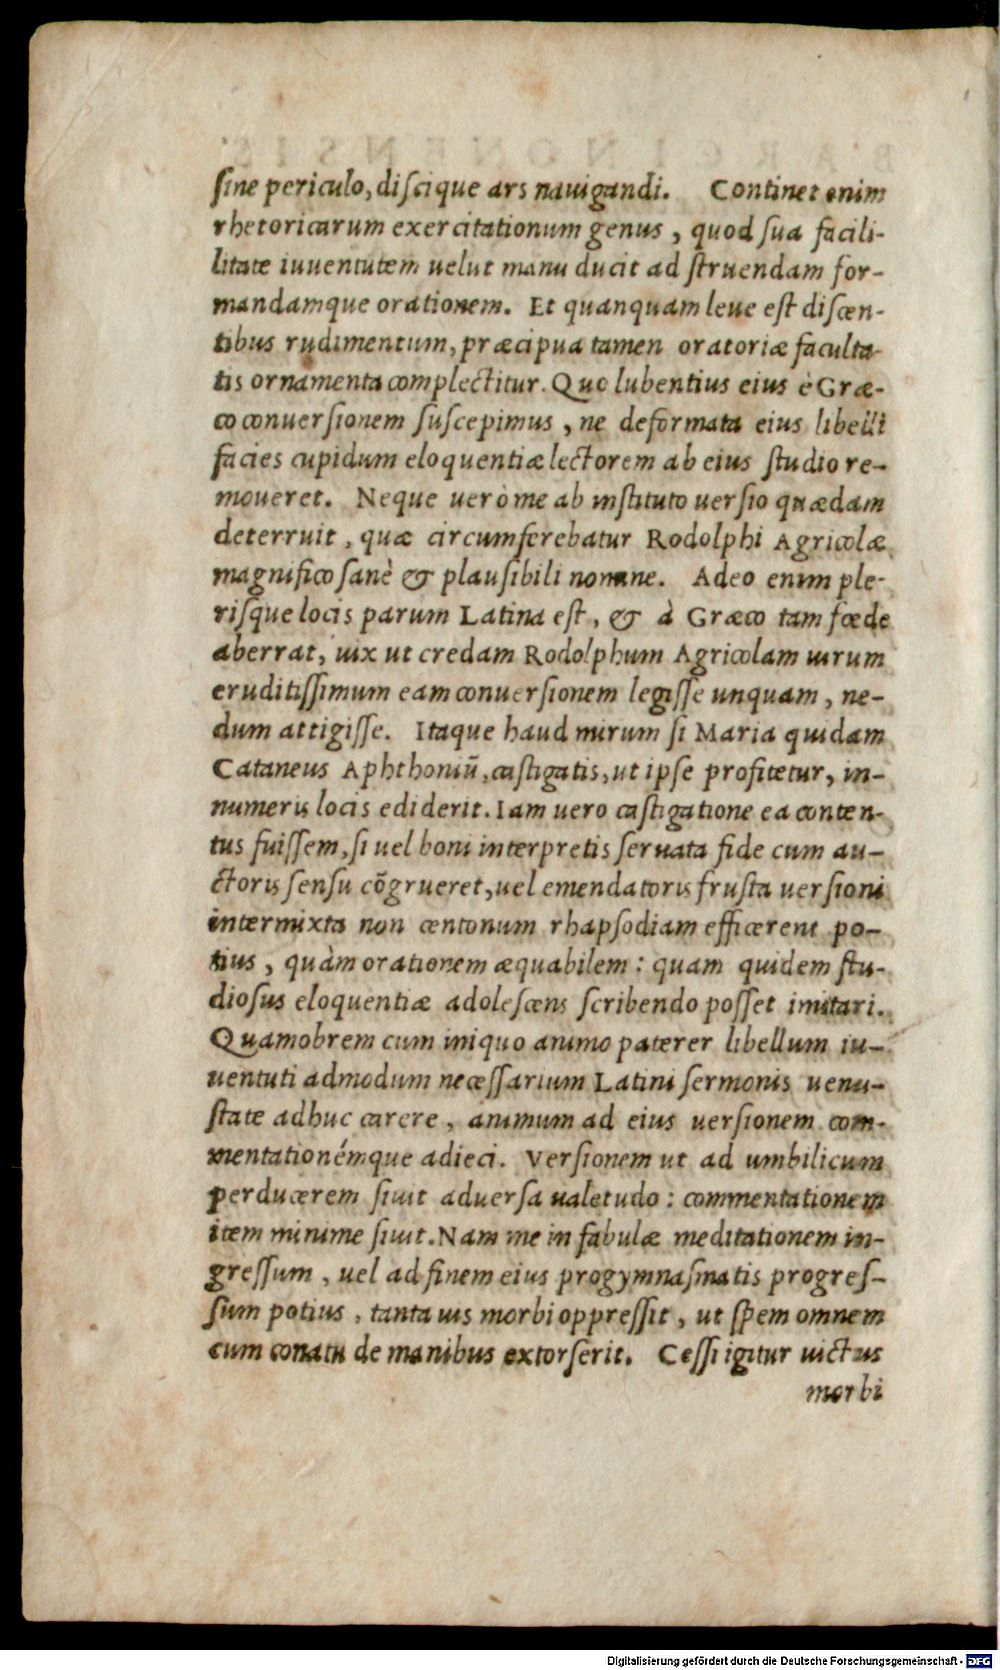 sine periculo, discique ars nauigandi. Continet enim
rhetoricarum exercitationum genus, quod sua facili-
litate iuuentutem uelut manu ducit ad struendam for-
mandamque orationem. Et quanquam leue est discen-
tibus rudimentum, præcipua tamen oratoriæ faculta-
tis ornamenta complectitur. Quo lubentius eius è Græ-
co conuersionem suscepimus, ne deformata eius libelli
facies cupidum eloquentiæ lectorem ab eius studio re-
moueret. Neque uerò me ab instituto uersio quædam
deterruit, quæ circumferebatur Rodolphi Agricolæ
magnifico sanè & plausibili nomine. Adeo enim ple-
risque locis parum Latina est, & à Græco tam fœde
aberrat, uix ut credam Rodolphum Agricolam uirum
eruditissimum eam conuersionem legisse unquam, ne-
dum attigisse. Itaque haud mirum si Maria quidam
Cataneus Aphthoniũ, castigatis, ut ipse profitetur, in-
numeris locis ediderit. Iam uero castigatione ea conten-
tus fuissem, si uel boni interpretis seruata fide cum au-
ctoris sensu cõgrueret, uel emendatoris frusta uersioni
intermixta non centonum rhapsodiam efficerent po-
tius, quàm orationem æquabilem: quam quidem stu-
diosus eloquentiæ adolescens scribendo posset imitari.
Quamobrem cum iniquo animo paterer libellum iu-
uentuti admodum necessarium Latini sermonis uenu-
state adhuc carere, animum ad eius uersionem com-
mentationémque adieci. Versionem ut ad umbilicum
perducerem siuit aduersa ualetudo: commentationem
item minime siuit. Nam me in fabulæ meditationem in-
gressum, uel ad finem eius progymnasmatis progres-
sum potius, tanta uis morbi oppressit, ut spem omnem
cum conatu de manibus extorserit. Cessi igitur uictus
morbi
Digitalisierung gefördert durch die Deutsche Forschungsgemeinschaft - DFG